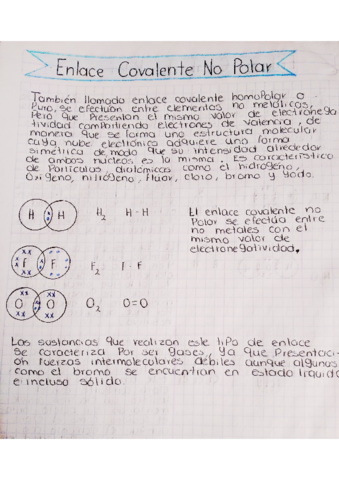 Enlace Covalente No Polar
También llamado enlace covalente homopolar o
Puro, se efectúan entre elementos no metálicos,
Pero que Presentan el mismo valor de electronega
tividad compartiendo electrones de valencia, de
manera que se forma una estructura molecular
cuya nube electrónica adquiere una forma
simétrica de modo que su intensidad alrededor
de ambos núcleos es la misma. Es característico
de Partículas diatómicas como el hidrógeno,
Oxígeno, nitrógeno, fluor, cloro, bromo y Yodo.
H H H2 H-H
F F F2 F-F
O O O2 O=O
El enlace covalente no
Polar se efectúa entre
no metales con el
mismo valor de
electronegatividad.
Las sustancias que realizan este tipo de enlace
se caracteriza Por ser gases, ya que Presentaci-
ón fuerzas intermoleculares débiles aunque algunas
como el bromo se encuentran en estado líquido
e incluso sólido.